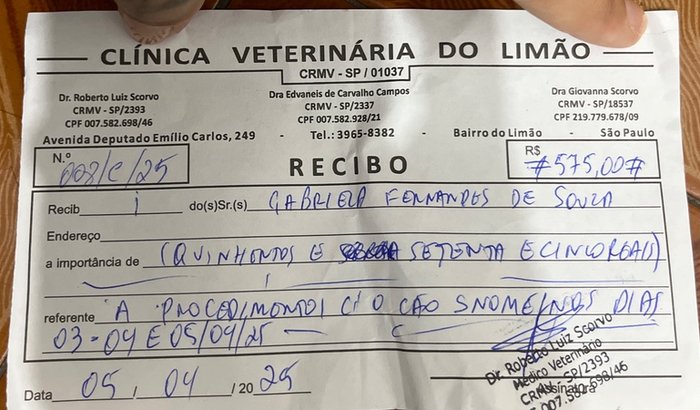 CLÍNICA VETERINÁRIA DO LIMÃO
CRMV - SP / 01037
Dr. Roberto Luiz Scorvo Dra Edvaneis de Carvalho Campos Dra Giovanna Scorvo
CRMV - SP/2393 CRMV - SP/2337 CRMV - SP/18537
CPF 007.582.698/46 CPF 007.582.928/21 CPF 219.779.678/09
Avenida Deputado Emílio Carlos, 249 - Tel.: 3965-8382 - Bairro do Limão - São Paulo
N.º 008/C/25 RECIBO R$ #575,00#
Recib i do(s)Sr.(s) GABRIELA FERNANDES DE SOUZA
Endereço
a importância de (QUINHENTOS E SETENTA E CINCO REAIS)
referente A PROCEDIMENTOS C/ O CÃO SNOME/NOS DIAS
03-04 E 05/04/25
Data 05 / 04 / 2025 Assinatura
Dr. Roberto Luiz Scorvo
Médico Veterinário
CRMV - SP/2393
007.582.698/46